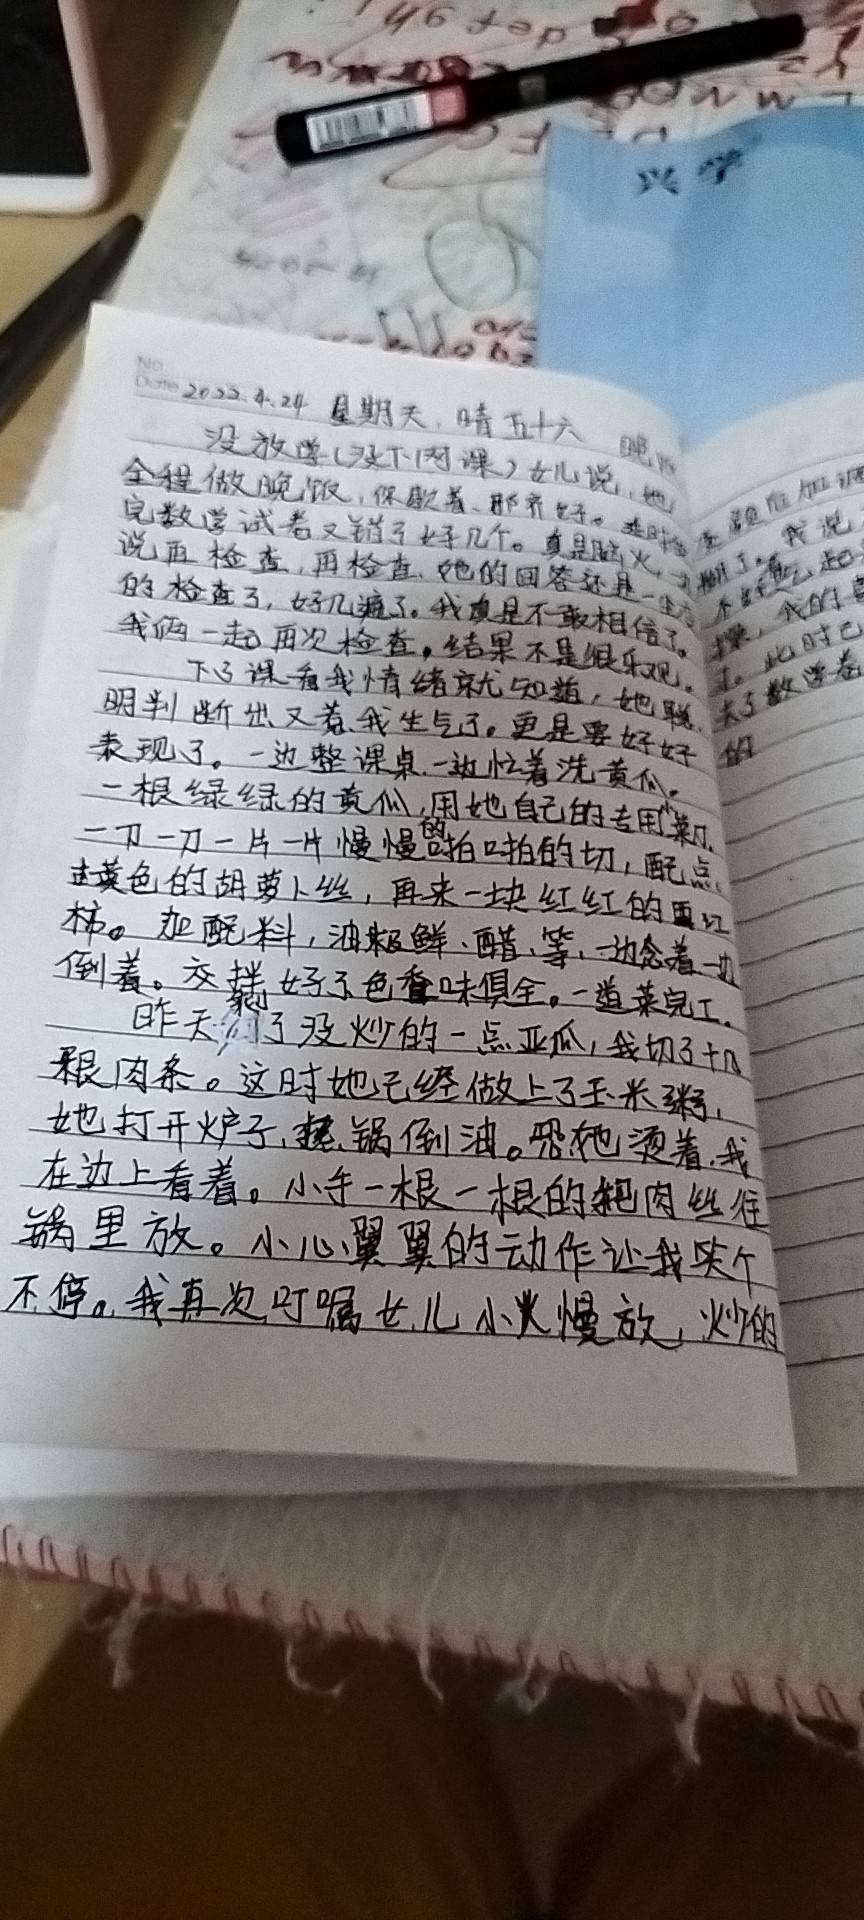 兴学
No
Date 2022.4.24 星期天.晴 五十六 晚饭
没放学(没下网课)女儿说,她
全程做晚饭,你歇着、那齐好。
完数学试卷又错了好几个。真是脑火,
说再检查,再检查.她的回答还是一
的检查了,好几遍了。我真是不敢相信了。
我俩一起再次检查。结果不是很乐观。
下了课看我情绪就知道,她聪
明判断出又惹我生气了。更是要好好
表现了。一边整课桌.一边忙着洗黄瓜。
一根绿绿的黄瓜,用她自己的专用小菜刀.
一刀一刀一片一片慢慢的啪啪的切,配点
黄色的胡萝卜丝,再来一块红红的西红
柿。加配料,油极鲜、醋、等,一边念着一边
倒着。交拌好了色香味俱全。一道菜完工。
昨天剩了没炒的一点亚瓜,我切了十几
根肉条。这时她已经做上了玉米粥,
她打开炉子.热锅倒油。恐她烫着.我
在边上看着。小手一根一根的把肉丝往
锅里放。小心翼翼的动作让我笑个
不停。我再次叮嘱女儿小火慢放,炒的
我说
我的
此时已
去了数学卷
的